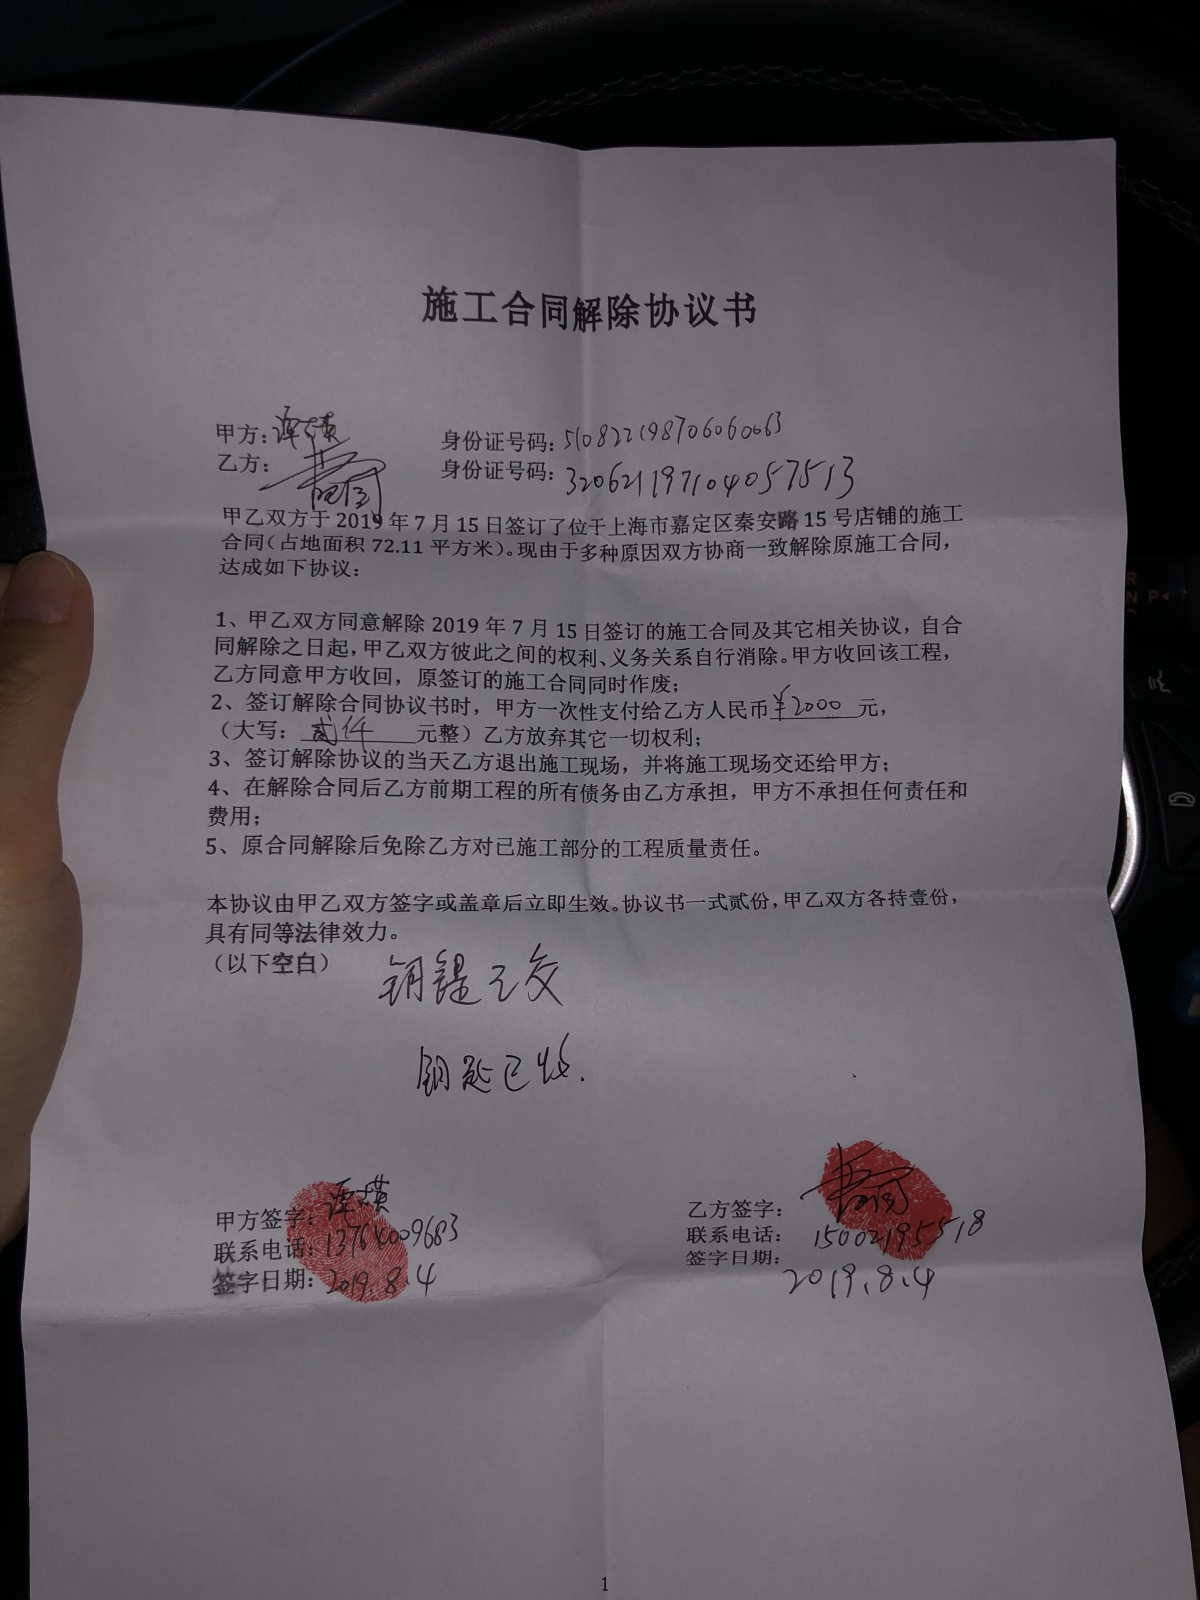 施工合同解除协议书
甲方：谭 身份证号码：510822198706060063
乙方： 身份证号码：320621197104057513
甲乙双方于 2019 年 7 月 15 日签订了位于上海市嘉定区秦安路 15 号店铺的施工
合同（占地面积 72.11 平方米）。现由于多种原因双方协商一致解除原施工合同，
达成如下协议：
1、甲乙双方同意解除 2019 年 7 月 15 日签订的施工合同及其它相关协议，自合
同解除之日起，甲乙双方彼此之间的权利、义务关系自行消除。甲方收回该工程，
乙方同意甲方收回，原签订的施工合同同时作废；
2、签订解除合同协议书时，甲方一次性支付给乙方人民币¥2000元，
（大写：贰仟元整）乙方放弃其它一切权利；
3、签订解除协议的当天乙方退出施工现场，并将施工现场交还给甲方；
4、在解除合同后乙方前期工程的所有债务由乙方承担，甲方不承担任何责任和
费用；
5、原合同解除后免除乙方对已施工部分的工程质量责任。
本协议由甲乙双方签字或盖章后立即生效。协议书一式贰份，甲乙双方各持壹份，
具有同等法律效力。
（以下空白）
钥匙已交
钥匙已收.
甲方签字：谭 乙方签字：
联系电话：13764009683 联系电话：15002195518
签字日期：2019.8.4 签字日期：2019.8.4
1